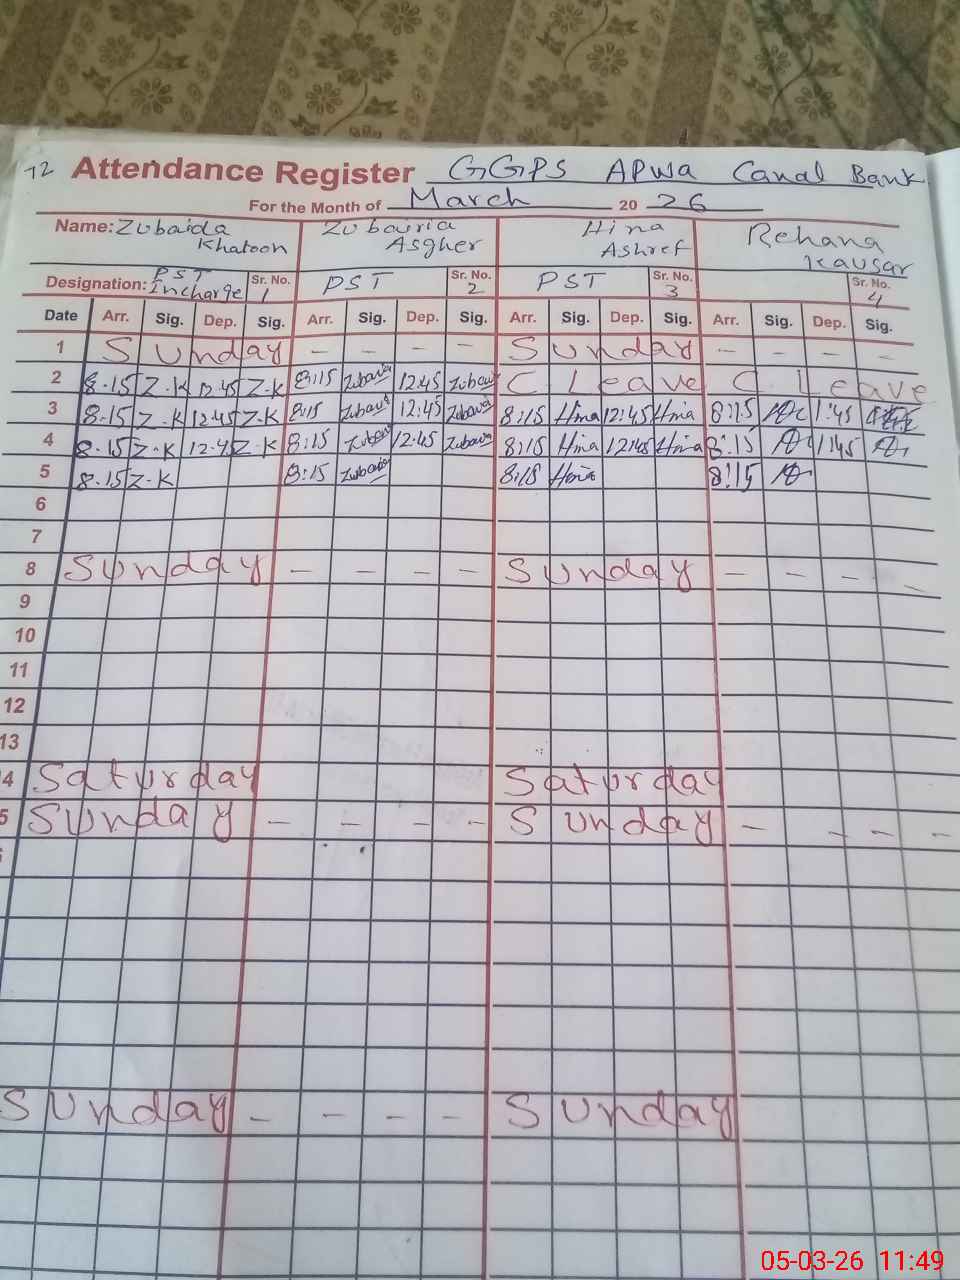 72 Attendance Register GGPS APWA Canal Bank
For the Month of March 20 26
Name: Zubaida Khatoon Zubairia Asgher Hina Ashref Rehana Kausar
Designation: PST Incharge Sr. No. 1 PST Sr. No. 2 PST Sr. No. 3 Sr. No. 4
Date Arr. Sig. Dep. Sig. Arr. Sig. Dep. Sig. Arr. Sig. Dep. Sig. Arr. Sig. Dep. Sig.
1 Sunday - - - - Sunday - - - -
2 8.15 Z.K 12.45 Z.K 8:15 Zubairia 12:45 Zubairia C Leave C. Leave
3 8.15 Z.K 12.45 Z.K 8:15 Zubairia 12:45 Zubairia 8:15 Hina 12:45 Hina 8:15 1:45
4 8.15 Z.K 12.45 Z.K 8:15 Zubairia 12:45 Zubairia 8:15 Hina 12:45 Hina 8:15 1:45
5 8.15 Z.K 8:15 Zubairia 8:15 Hina 8:15
6
7
8 Sunday - - - - Sunday - - - -
9
10
11
12
13
4 Saturday Saturday
5 Sunday - - - - Sunday - - - -
Sunday - - - - Sunday
05-03-26 11:49